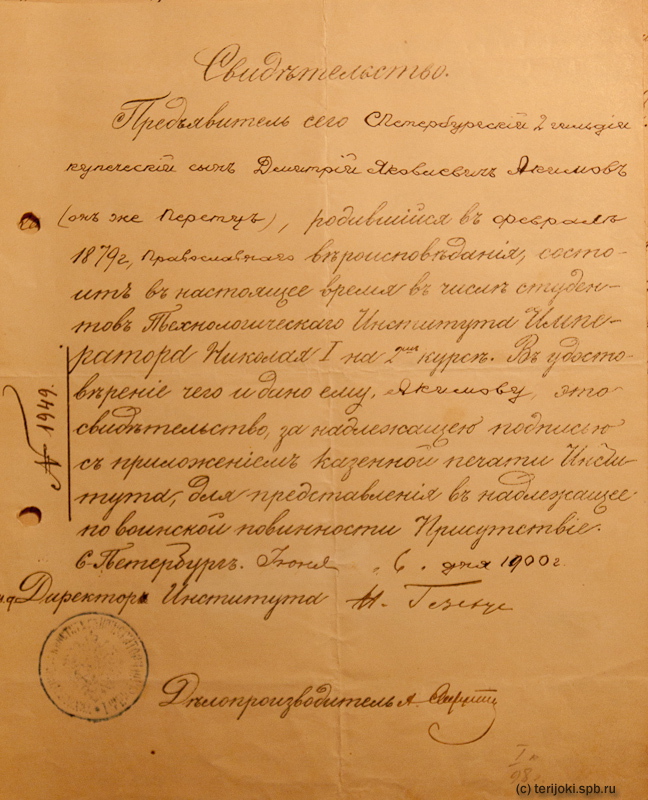 Свидѣтельство.
Предъявитель сего СПетербургскій 2 гильдіи
купеческій сынъ Дмитрій Яковлевичъ Акимовъ
(онъ же Перетцъ), родившійся въ февралѣ
1879 г., Православнаго вѣроисповѣданія, состо-
итъ въ настоящее время въ числѣ студен-
товъ Технологическаго Института Импе-
ратора Николая I на 2ом курсѣ. Въ удосто-
вѣреніе чего и дано ему, Акимову, это
свидѣтельство, за надлежащею подписью
съ приложеніемъ казенной печати Инсти-
тута, для представленія въ надлежащее
по воинской повинности Присутствіе.
С-Петербургъ. Іюня 6. дня 1900 г.
№ 1949.
И.д. Директора Института
Дѣлопроизводитель А.
(c) terijoki.spb.ru